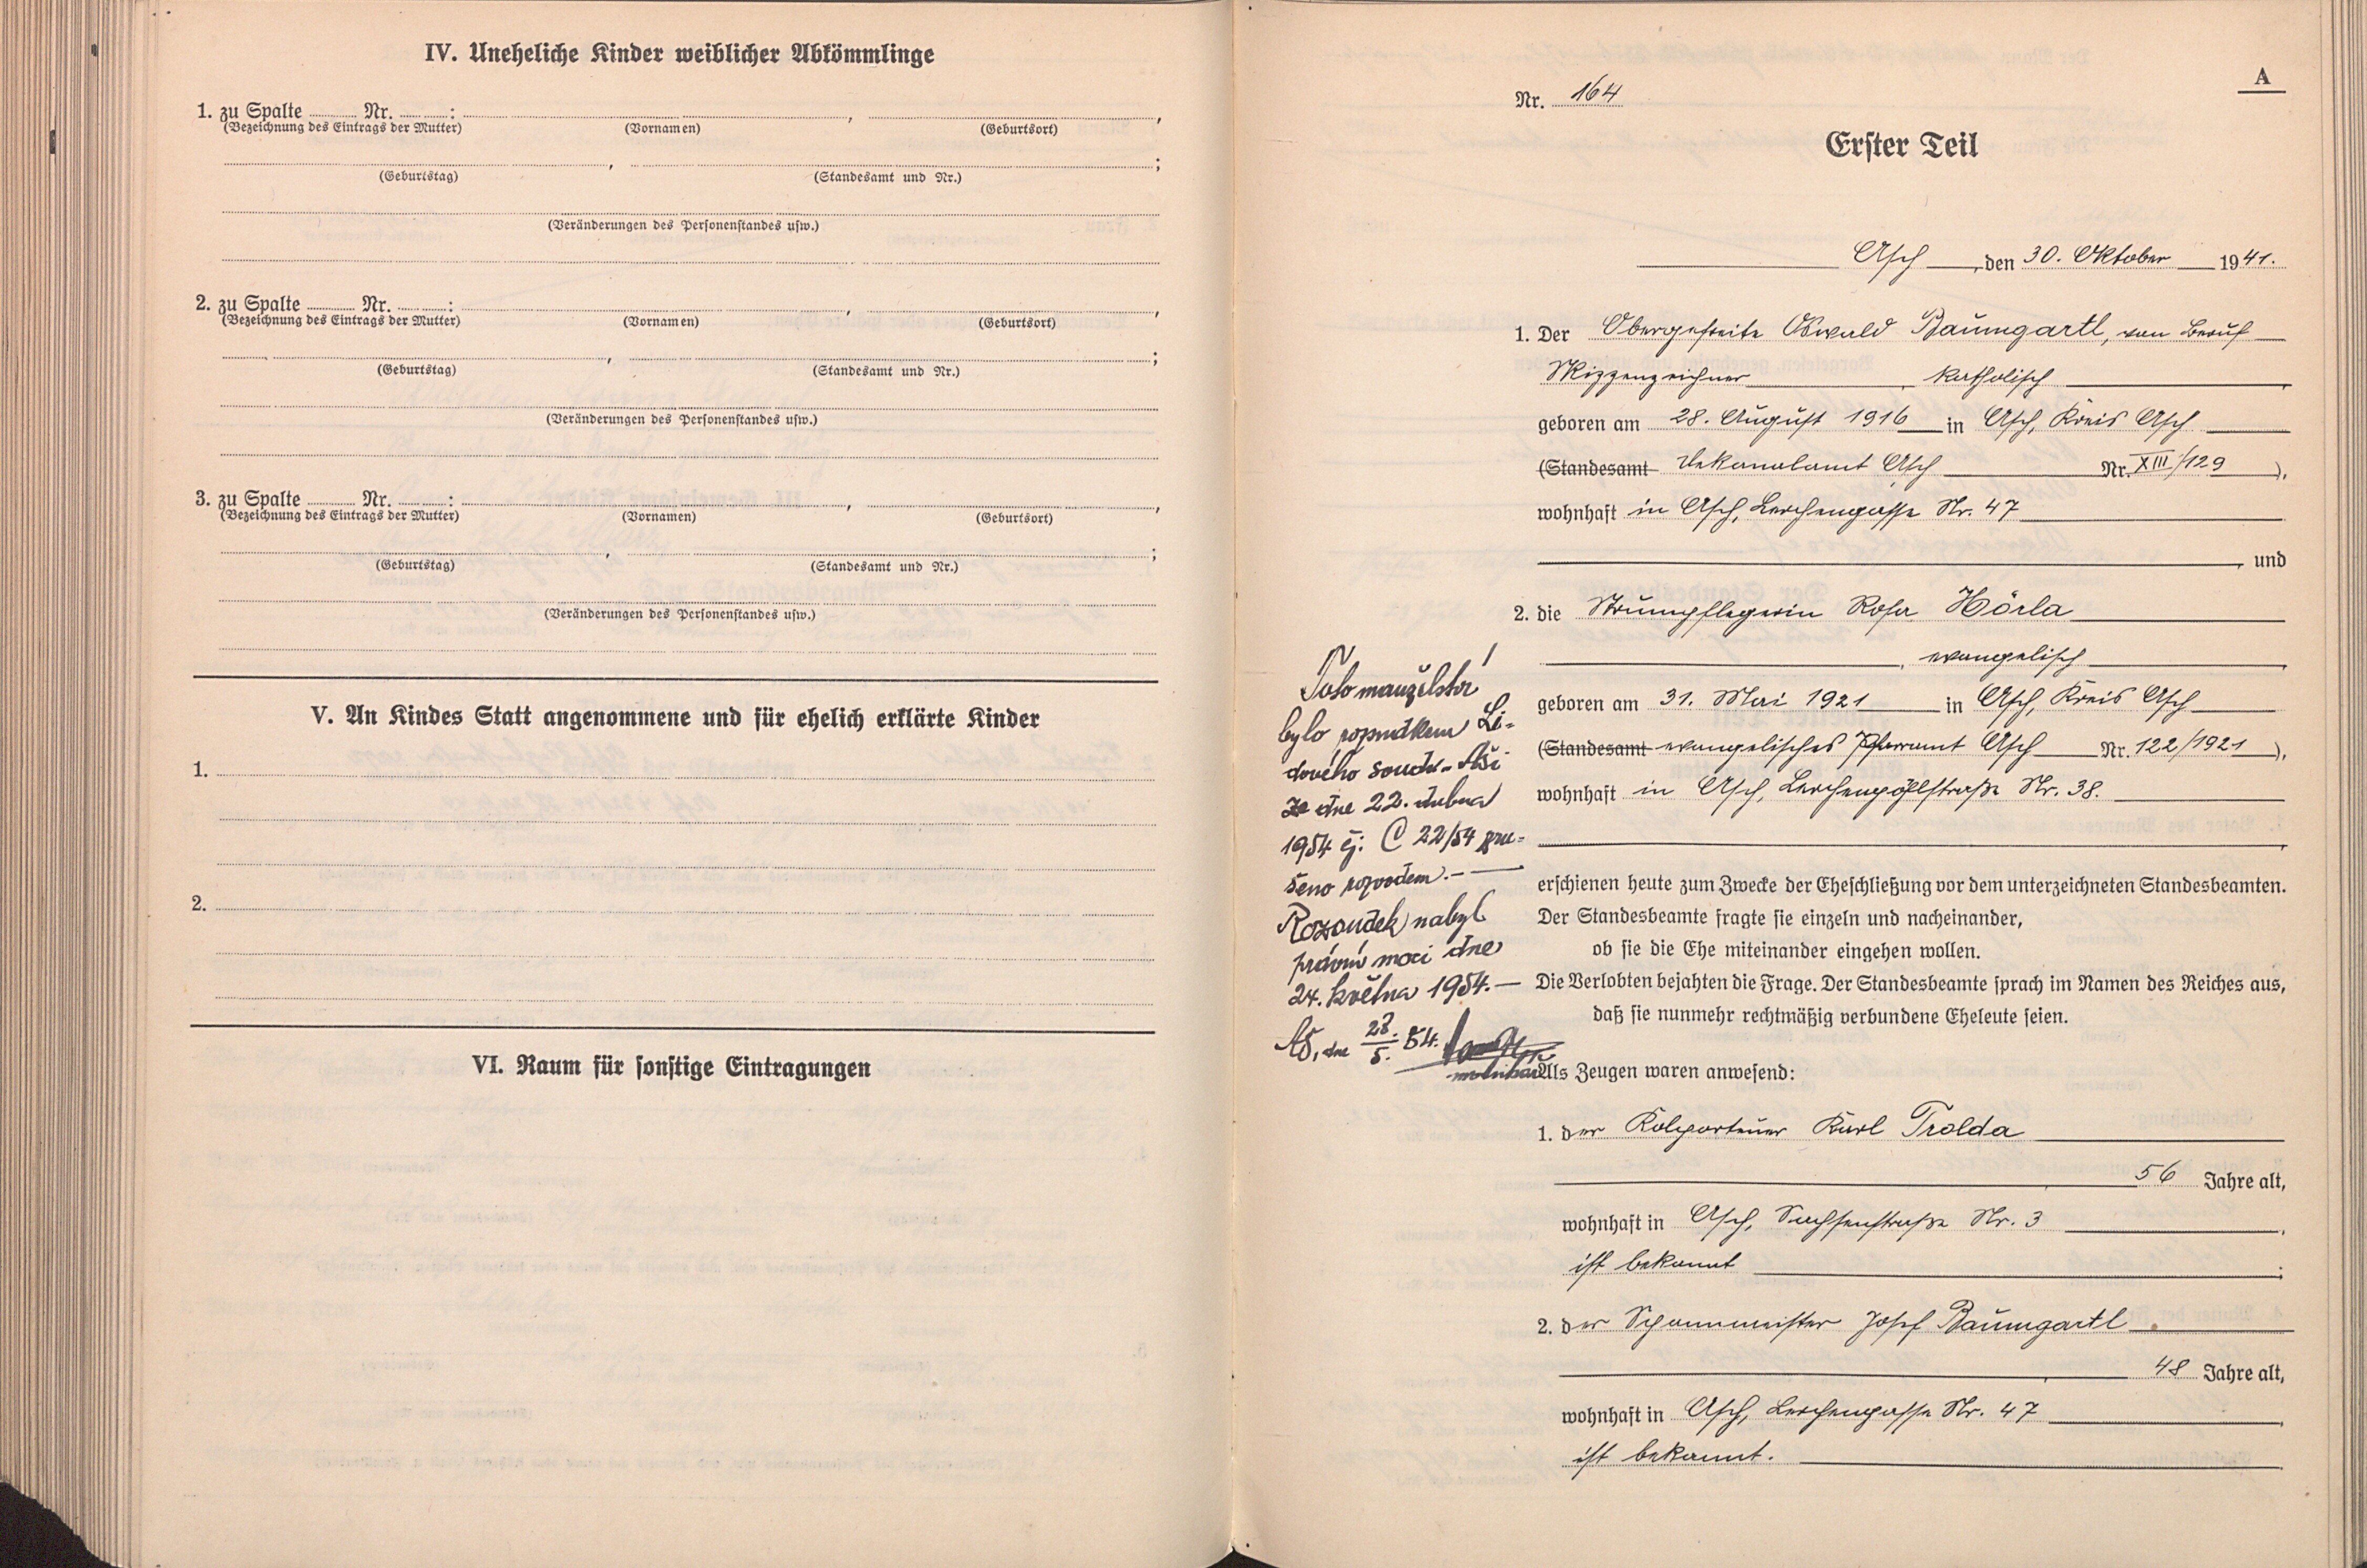 IV. Uneheliche Kinder weiblicher Abkömmlinge
1. zu Spalte ........ Nr. ........: , ,
(Bezeichnung des Eintrags der Mutter) (Vornamen) (Geburtsort)
, ;
(Geburtstag) (Standesamt und Nr.)
(Veränderungen des Personenstandes usw.)
2. zu Spalte ........ Nr. ........: , ,
(Bezeichnung des Eintrags der Mutter) (Vornamen) (Geburtsort)
, ;
(Geburtstag) (Standesamt und Nr.)
(Veränderungen des Personenstandes usw.)
3. zu Spalte ........ Nr. ........: , ,
(Bezeichnung des Eintrags der Mutter) (Vornamen) (Geburtsort)
, ;
(Geburtstag) (Standesamt und Nr.)
(Veränderungen des Personenstandes usw.)
V. An Kindes Statt angenommene und für ehelich erklärte Kinder
1.
2.
VI. Raum für sonstige Eintragungen
A
Nr. 164
Erster Teil
Asch, den 30. Oktober 1941.
1. Der Obergefreite Oswald Baumgartl, von Beruf
Skizzenzeichner, katholisch,
geboren am 28. August 1916 in Asch, Kreis Asch
(Standesamt Dekanalamt Asch Nr. XIII/129),
wohnhaft in Asch, Lerchengasse Nr. 47
, und
2. die Strumpflegerin Rosa Hörla
, evangelisch,
geboren am 31. Mai 1921 in Asch, Kreis Asch
(Standesamt evangelisches Pfarramt Asch Nr. 122/1921),
wohnhaft in Asch, Lerchenpöhlstraße Nr. 38.
,
erschienen heute zum Zwecke der Eheschließung vor dem unterzeichneten Standesbeamten.
Der Standesbeamte fragte sie einzeln und nacheinander,
ob sie die Ehe miteinander eingehen wollen.
Die Verlobten bejahten die Frage. Der Standesbeamte sprach im Namen des Reiches aus,
daß sie nunmehr rechtmäßig verbundene Eheleute seien.
Als Zeugen waren anwesend:
1. der Kolporteur Karl Trolda
, 56 Jahre alt,
wohnhaft in Asch, Sachsenstraße Nr. 3,
ist bekannt;
2. der Scheermeister Josef Baumgartl
, 48 Jahre alt,
wohnhaft in Asch, Lerchengasse Nr. 47,
ist bekannt.
Toto manželství
bylo rozsudkem Li-
dového soudu v Aši
ze dne 22. dubna
1954 čj: C 22/54 zru-
šeno rozvodem.-
Rozsudek nabyl
právní moci dne
24. května 1954.-
Aš, dne 28./5. 54.